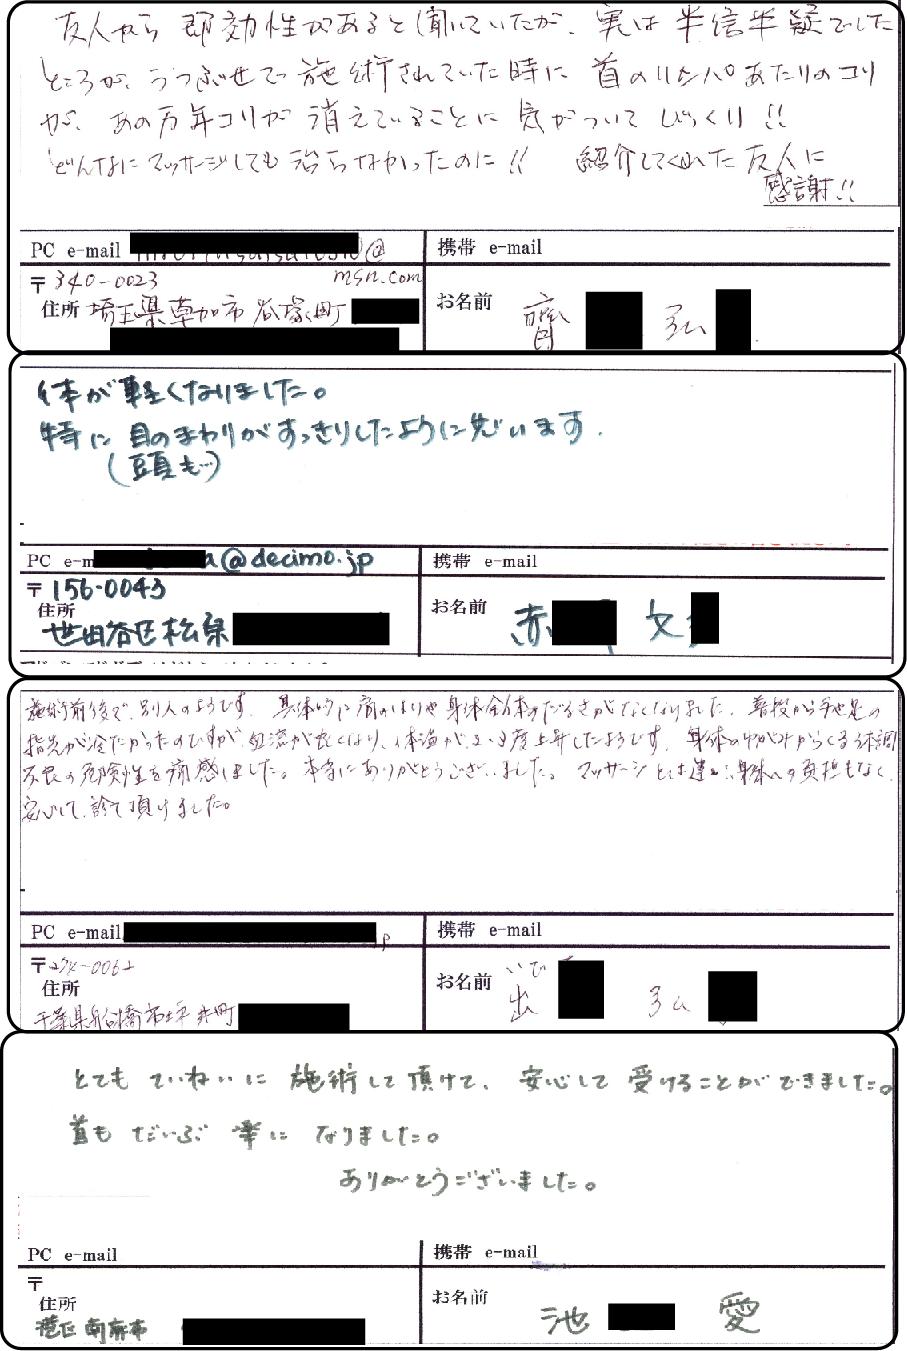 友人から即効性があると聞いていたが、実は半信半疑でした
ところが、うつぶせで施術されていた時に首のリンパあたりのコリ
が、あの万年コリが消えていることに気がついてびっくり!!
どんなにマッサージしても治らなかったのに!! 紹介してくれた友人に
感謝!!
PC e-mail @ 携帯 e-mail
msn.com
〒340-0023
住所 埼玉県草加市谷塚町 お名前 齊 弘
体が軽くなりました。
特に目のまわりがすっきりしたように思います.
(頭も…)
PC e-m a@decimo.jp 携帯 e-mail
〒156-0043
住所 お名前 赤 文
世田谷区松原
施術前後で、別人のようです。具体的に肩のはりや身体全体のだるさがなくなりました。普段から手や足の
指先が冷たかったのですが、血流が良くなり、体温が2、3度上昇したようです。身体のゆがみからくる体調
不良の危険性を痛感しました。本当にありがとうございました。マッサージとは違い身体への負担もなく、
安心して診て頂けました。
PC e-mail p 携帯 e-mail
〒274-0062 いで
住所 お名前 出 弘
千葉県船橋市坪井町
とても ていねいに 施術して頂けて、安心して受けることができました。
首も だいぶ 楽に なりました。
ありがとうございました。
PC e-mail 携帯 e-mail
〒
住所 お名前 池 愛
港区 南麻布